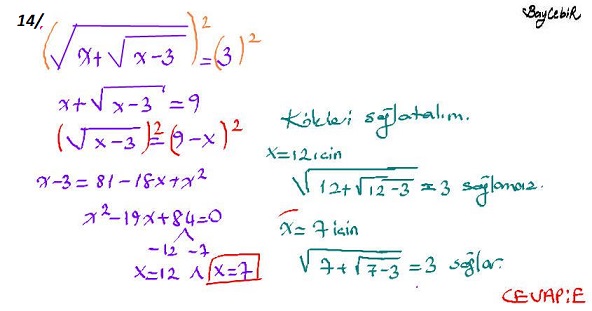 14/.
BayCebir
(√(x+√(x-3)))² = (3)²
x+√(x-3) = 9
(√(x-3))² = (9-x)²
x-3 = 81-18x+x²
x²-19x+84=0
-12 -7
x=12 ∧ x=7
Kökleri sağlatalım.
x=12 için
√(12+√(12-3)) = 3 sağlamaz.
x=7 için
√(7+√(7-3)) = 3 sağlar.
CEVAP:E